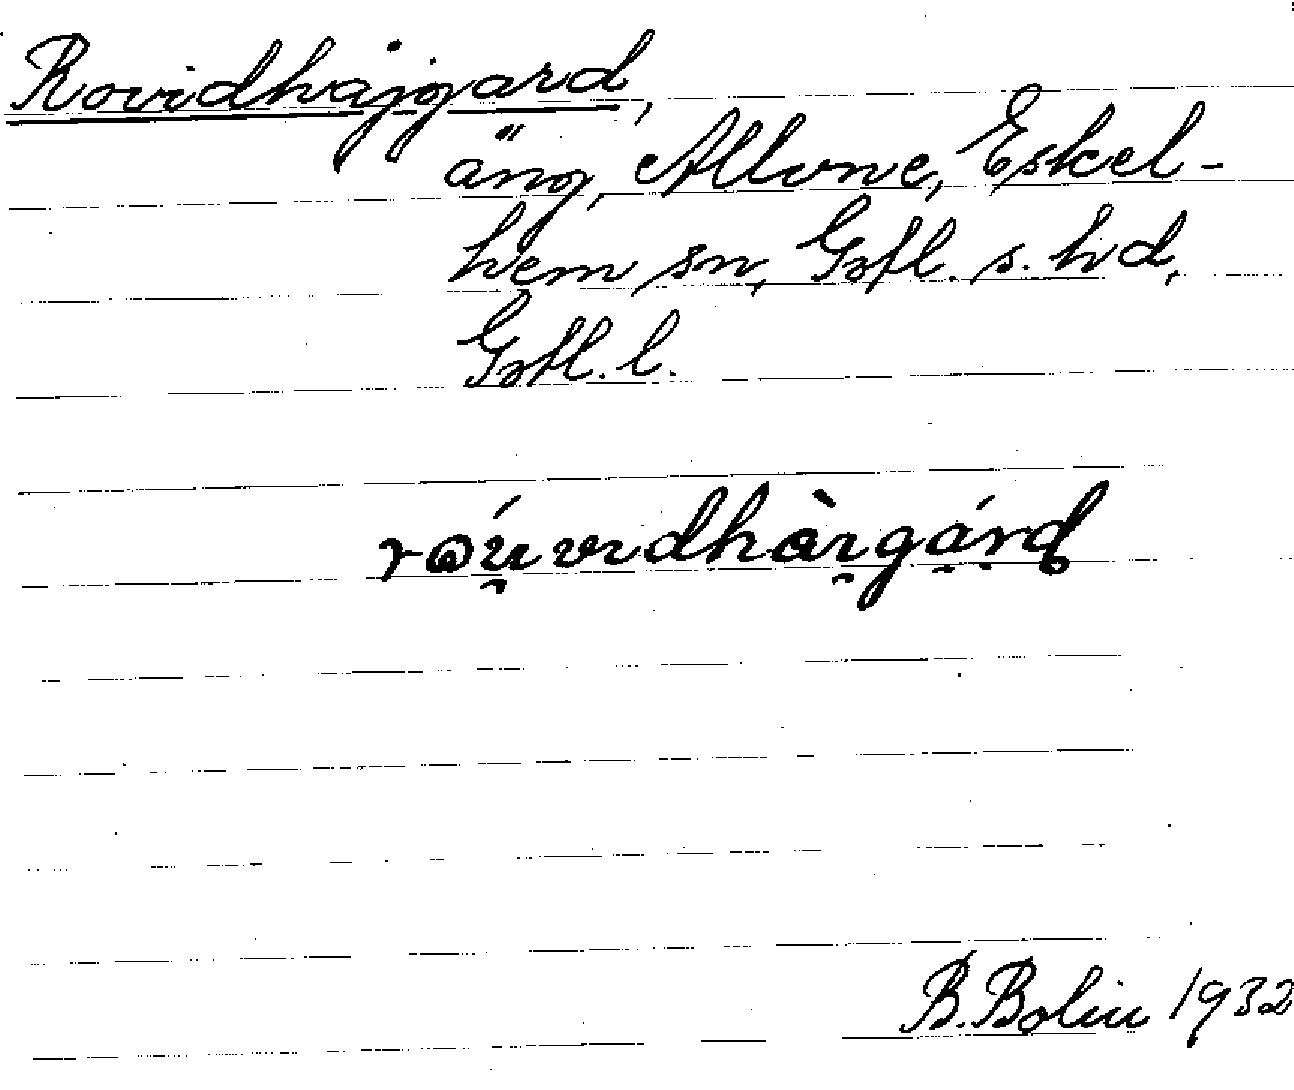 Rovidhajgard,
äng, Allvne, Eskel-
hem sn, Gotl. s. hd,
Gotl. l.
rɷúvıdhàrgárd
B. Bolin 1932